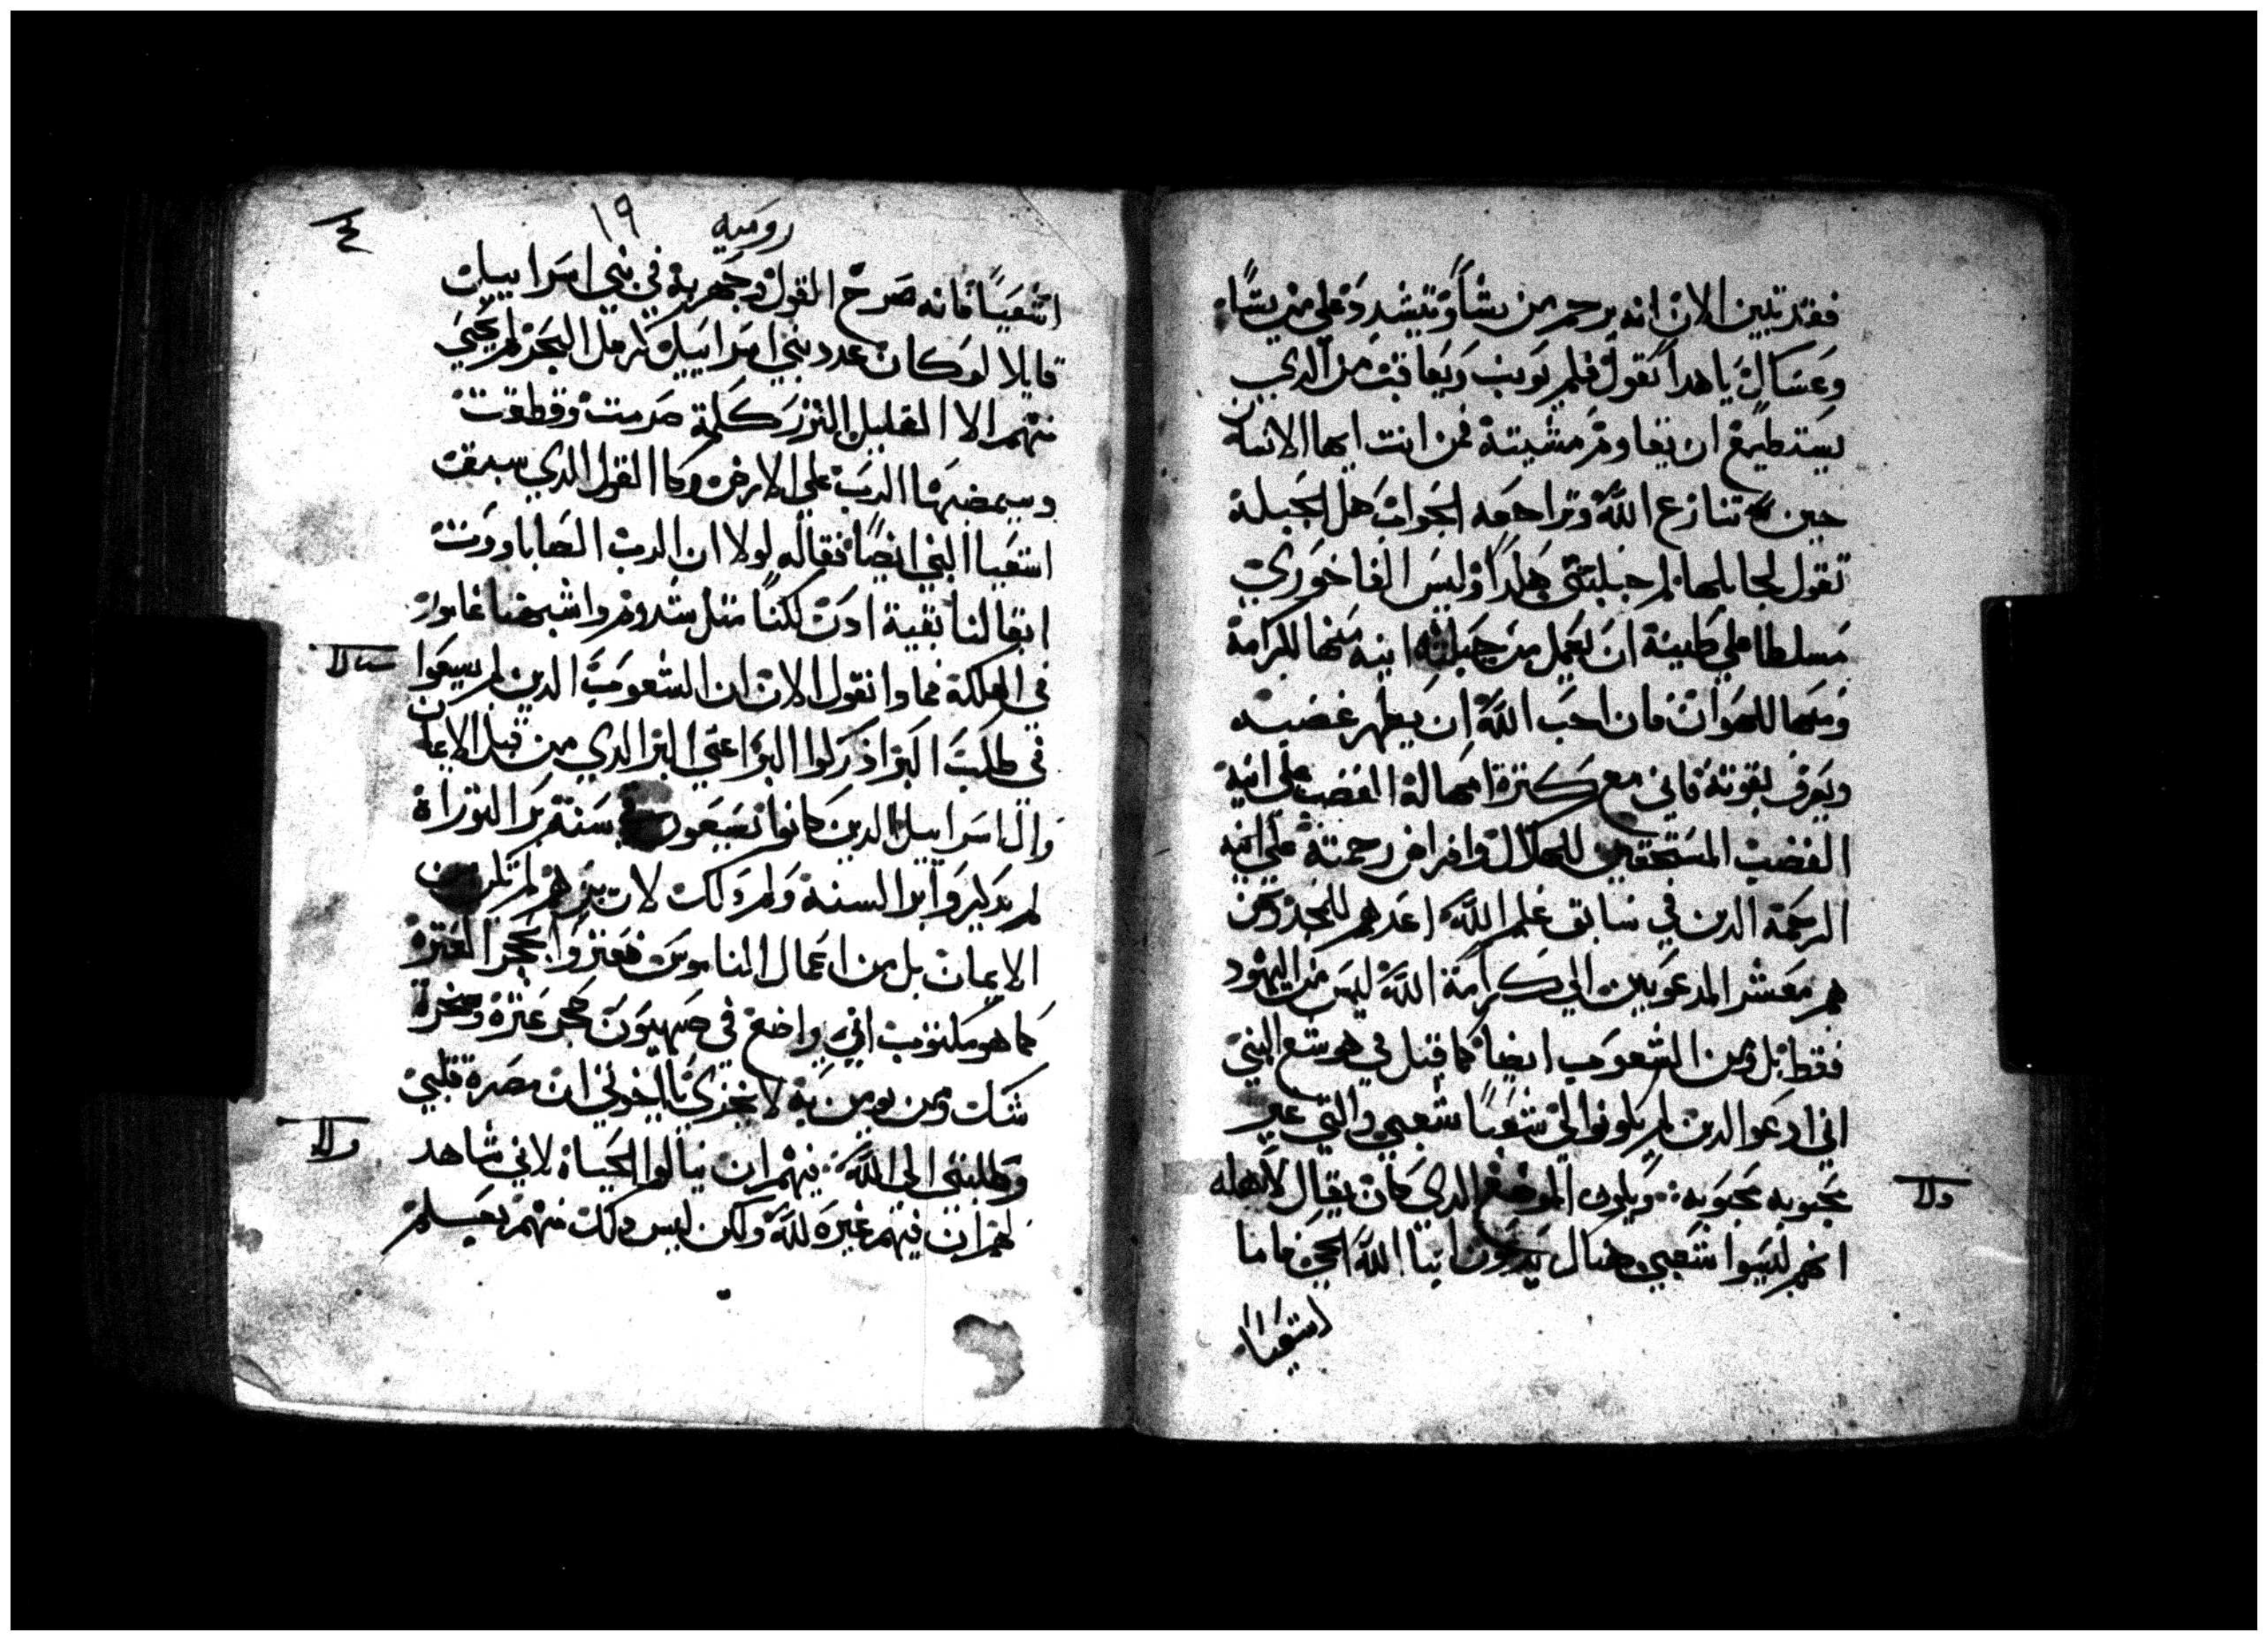 فقد تبين الان انه يرحم من يشا ويشدد علي من يشا
وعساك يا هدا تقول فلم يونب ويعاقب من الدي
يستطيع ان يقاوم مشيته فمن انت ايها الانسان
حين تنازع الله وتراجعه الجواب هل الجبلة
تقول لجابلها لم جبلتني هكدا اوليس الفاخوري
مسلطا علي طينة ان يعمل من جبلته انيه منها للكرامة
ومنها للهوان فان احب الله ان يظهر غضبه
ويعرف بقوته فاني مع كترة امهالة الغضب علي انية
الغضب المستحقين للهلاك وافراض رحمته علي انية
الرحمة الدين في سابق علم الله اعدهم للمجد ومن
هم معشر المدعويين الي كرامة الله ليس من اليهود
فقط بل ومن الشعوب ايضا كما قيل في هوشع النبي
اني ادعوا الدين لم يكونوا لي شعبا شعبي والتي غير
محبوبه محبوبه ويكون الموضع الدي كان يقال لاهله
ولا
انهم ليسوا شعبي هناك يدعون ابنا الله الحي فاما
اشعيا
روميه ١٩
اشعيا فانه صرح القول وجهر به في بني اسراييل
قايلا لو كان عدد بني اسراييل كرمل البحر لم يحيي
منهم الا القليل النزر كلمة صرمت وقطعت
وسيمضيها الرب علي الارض وكا القول الدي سبق
اشعيا النبي ايضا فقاله لولا ان الرب الصاباووت
ابقا لنا بقية ادن لكنا متل سدوم واشبهنا غامورا
في الهلكة فماوا نقول الان ان الشعوب الدين لم يسعوا
في طلب البر ادركوا البر اعني البر الدي من قبل الايمان
وال اسراييل الدين كانوا يسعون في سنة بر التوراة
لم يدركوا بر السنة ولم دلك لان برهم لم يكن من
الايمان بل من اعمال الناموس فعتروا بحجر العترة
كما هو مكتوب اني واضع في صهيون حجر عترة وصخرة
شك ومن يومن به لا يخزي يا اخوتي ان مصرة قلبي
ولا
وطلبتي الي الله فيهم ان ينالوا الحياة لاني شاهد
لهم ان فيهم غيره لله ولكن ليس دلك منهم بعلم